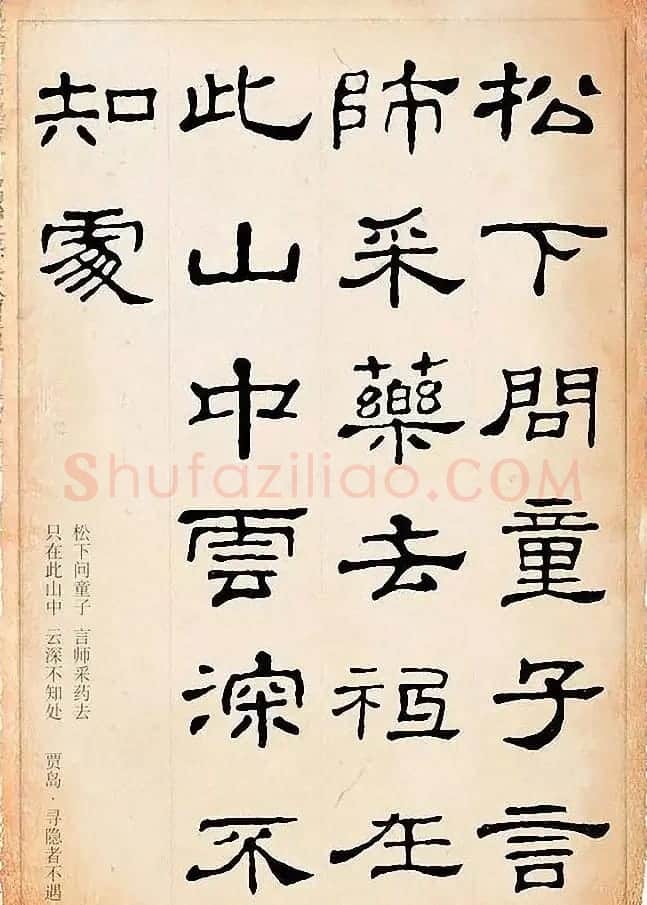 松下問童子言
師采藥去祗在
此山中雲深不
知處
松下问童子 言师采药去
只在此山中 云深不知处 贾岛·寻隐者不遇
Shufaziliao.COM